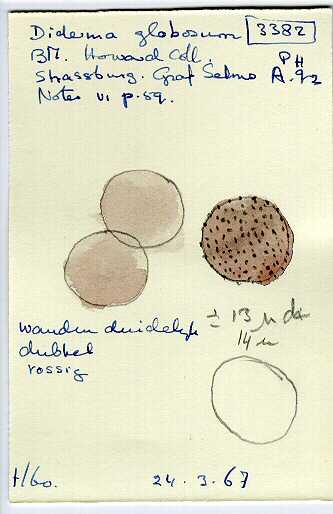 Diderma globosum 3382
BM. Howard Coll. PH
Strassburg. Graf A. 92
Notes VI p. 59.
± 13 μ
14 μ
wanden duidelijk
dubbel
rossig
H/60. 24.3.67